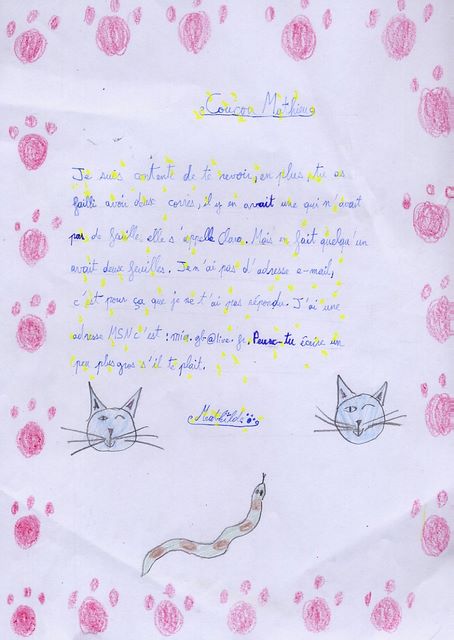 Coucou Mathieu
Je suis contente de te revoir, en plus, tu as
failli avoir deux corres, il y en avait une qui n'avait
pas de feuille elle s'appelle Clara. Mais en fait quelqu'un
avait deux feuilles. Je n'ai pas d'adresse e-mail,
c'est pour ça que je ne t'ai pas répondu. J'ai une
adresse MSN c'est : @live.fr. Peux-tu écrire un
peu plus gros s'il te plait.
Mathilde